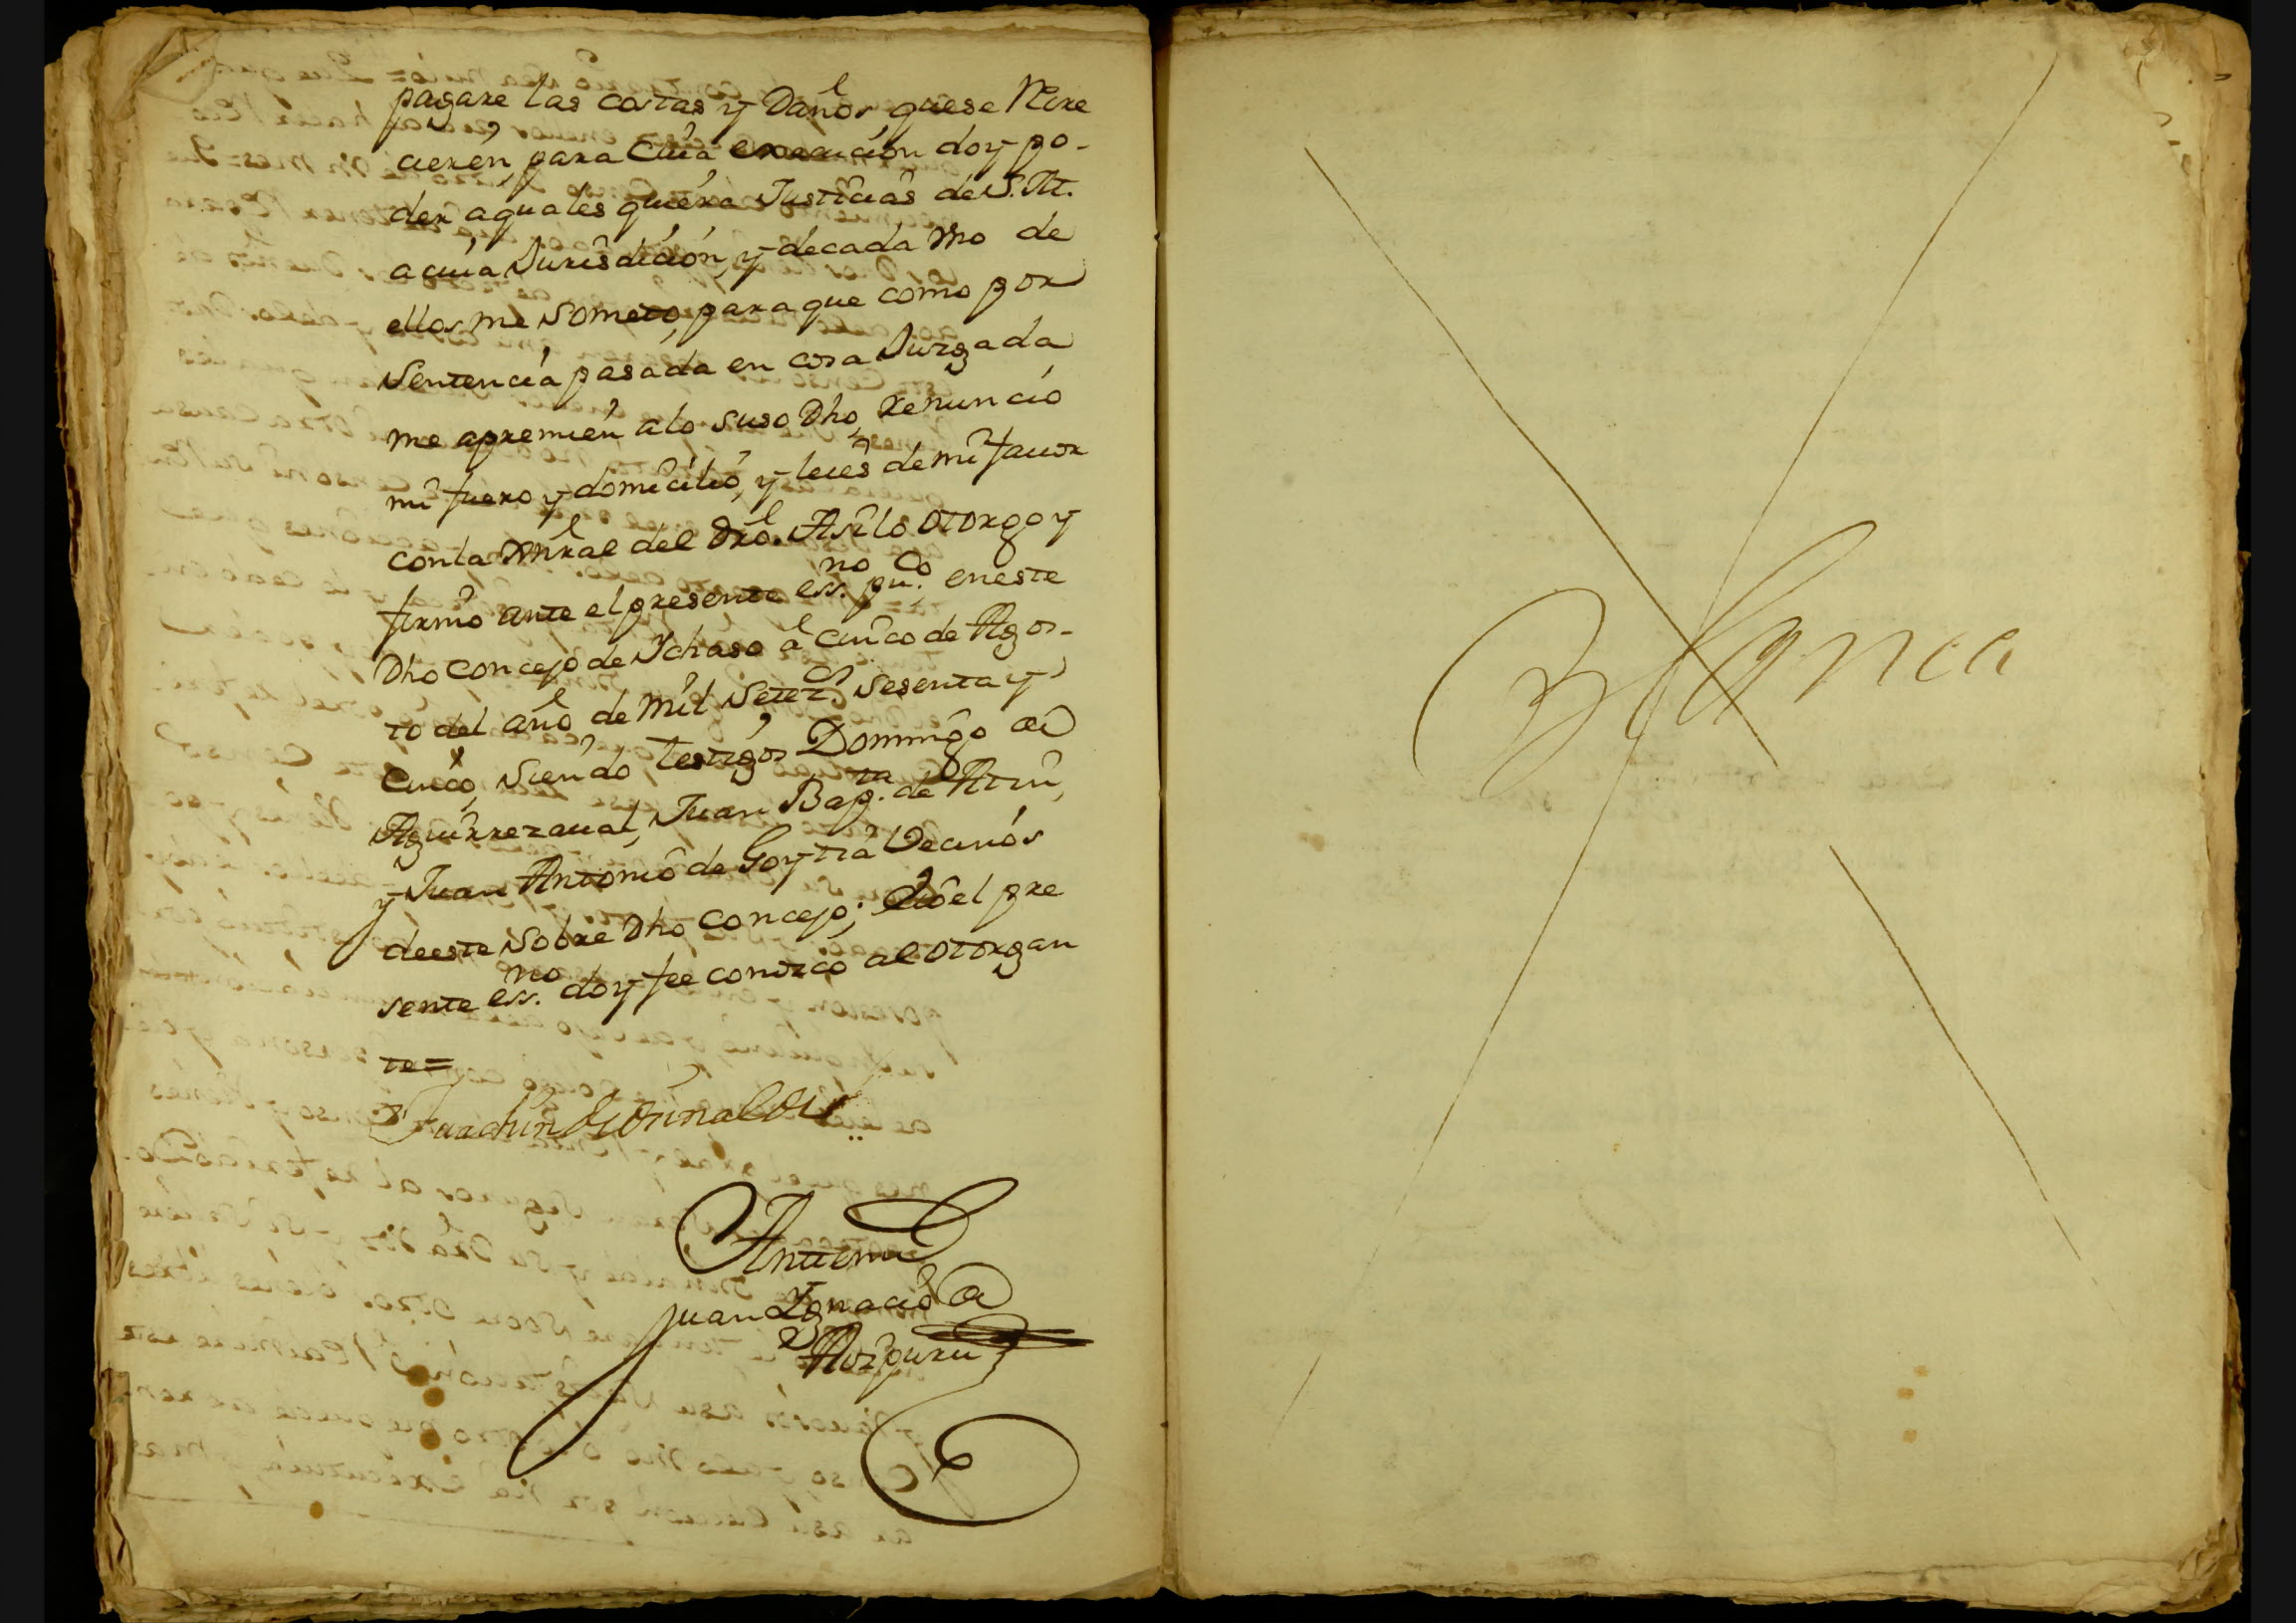 pagare las costas y Daños, quese Recre
cieren, para cuia execucion doy po-
der aquales quiera Justicias de S. M.
a cuia Jurisdicion, y decada vno de
ellos me someto, paraque como por
Sentencia pasada en cosa Juzgada
me apremien alo suso Dho, Renuncio
mi fuero y domicilio, y leies de mi fauor
conla gnral del dro. Asi lo otorgo y
firmo ante el presente ess.no pu.co eneste
Dho Concejo de Ychaso a cinco de Agos-
to del año de mil Setez.os Sesenta y
cinco, siendo testigos Domingo de
Aguirrezaual, Juan Bap.ta de
y Juan Antonio de Goytia Vecinos
deeste sobre Dho Concejo; Eio el pre
sente ess.no doy fee conozco al otorgan
te=
Juachin de Orinalde
Antemi
Juan Ygnacio de
Aozpuru
Blanca